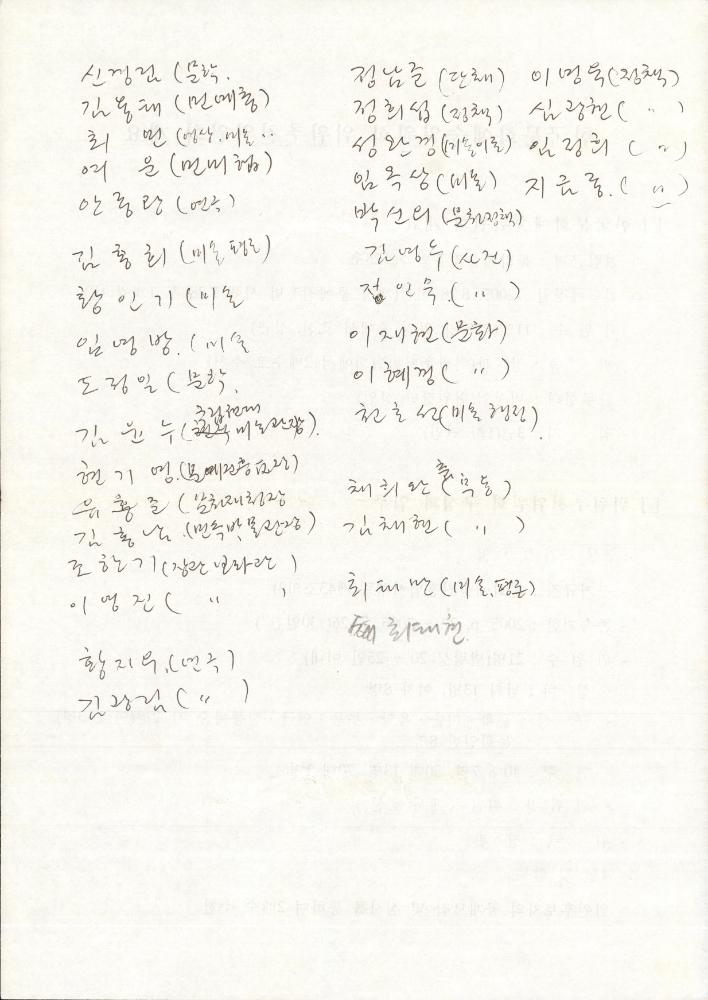 신경림 (문학.
김용태 (민예총)
최 민 (영상.미술..
여 운 (민미협)
안종관 (연극)
김홍희 (미술평론)
황인기 (미술
임영방. (미술
도정일 (문학.
김윤수 (국립현대 미술관장).
현기영. (문예진흥원장)
유홍준 (문화재청장
김홍남. (민속박물관장)
조한기 (장관보좌관)
이영진 ( " )
황지우. (연극)
김광림 ( " )
정남준 (단체)
정희섭 (정책)
성완경 (미술이론)
임옥상 (미술)
박신의 (문화정책)
김영수 (사진)
정인숙. ( " )
이재현 (문화)
이혜경 ( " )
천호선 (미술행정)
채희완 (춤, 탈춤)
김채현 ( " )
최태만 (미술.평론)
최태현
이영욱 (정책)
심광현 ( " )
임정희 ( " )
지금종. ( " )